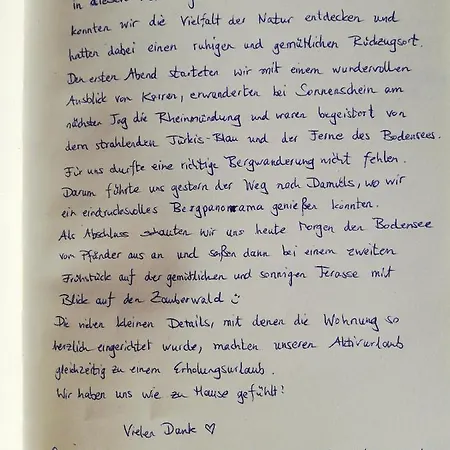 in diesem
konnten wir die Vielfalt der Natur entdecken und
hatten dabei einen ruhigen und gemütlichen Rückzugsort.
Den ersten Abend starteten wir mit einem wundervollen
Ausblick vom Karren, erwanderten bei Sonnenschein am
nächsten Tag die Rheinmündung und waren begeistert von
dem strahlenden Türkis-Blau und der Ferne des Bodensees.
Für uns durfte eine richtige Bergwanderung nicht fehlen.
Darum führte uns gestern der Weg nach Damüls, wo wir
ein eindrucksvolles Bergpanorama genießen konnten.
Als Abschluss schauten wir uns heute Morgen den Bodensee
vom Pfänder aus an und saßen dann bei einem zweiten
Frühstück auf der gemütlichen und sonnigen Terasse mit
Blick auf den Zauberwald ☺
Die vielen kleinen Details, mit denen die Wohnung so
herzlich eingerichtet wurde, machten unseren Aktivurlaub
gleichzeitig zu einem Erholungsurlaub.
Wir haben uns wie zu Hause gefühlt!
Vielen Dank ♡